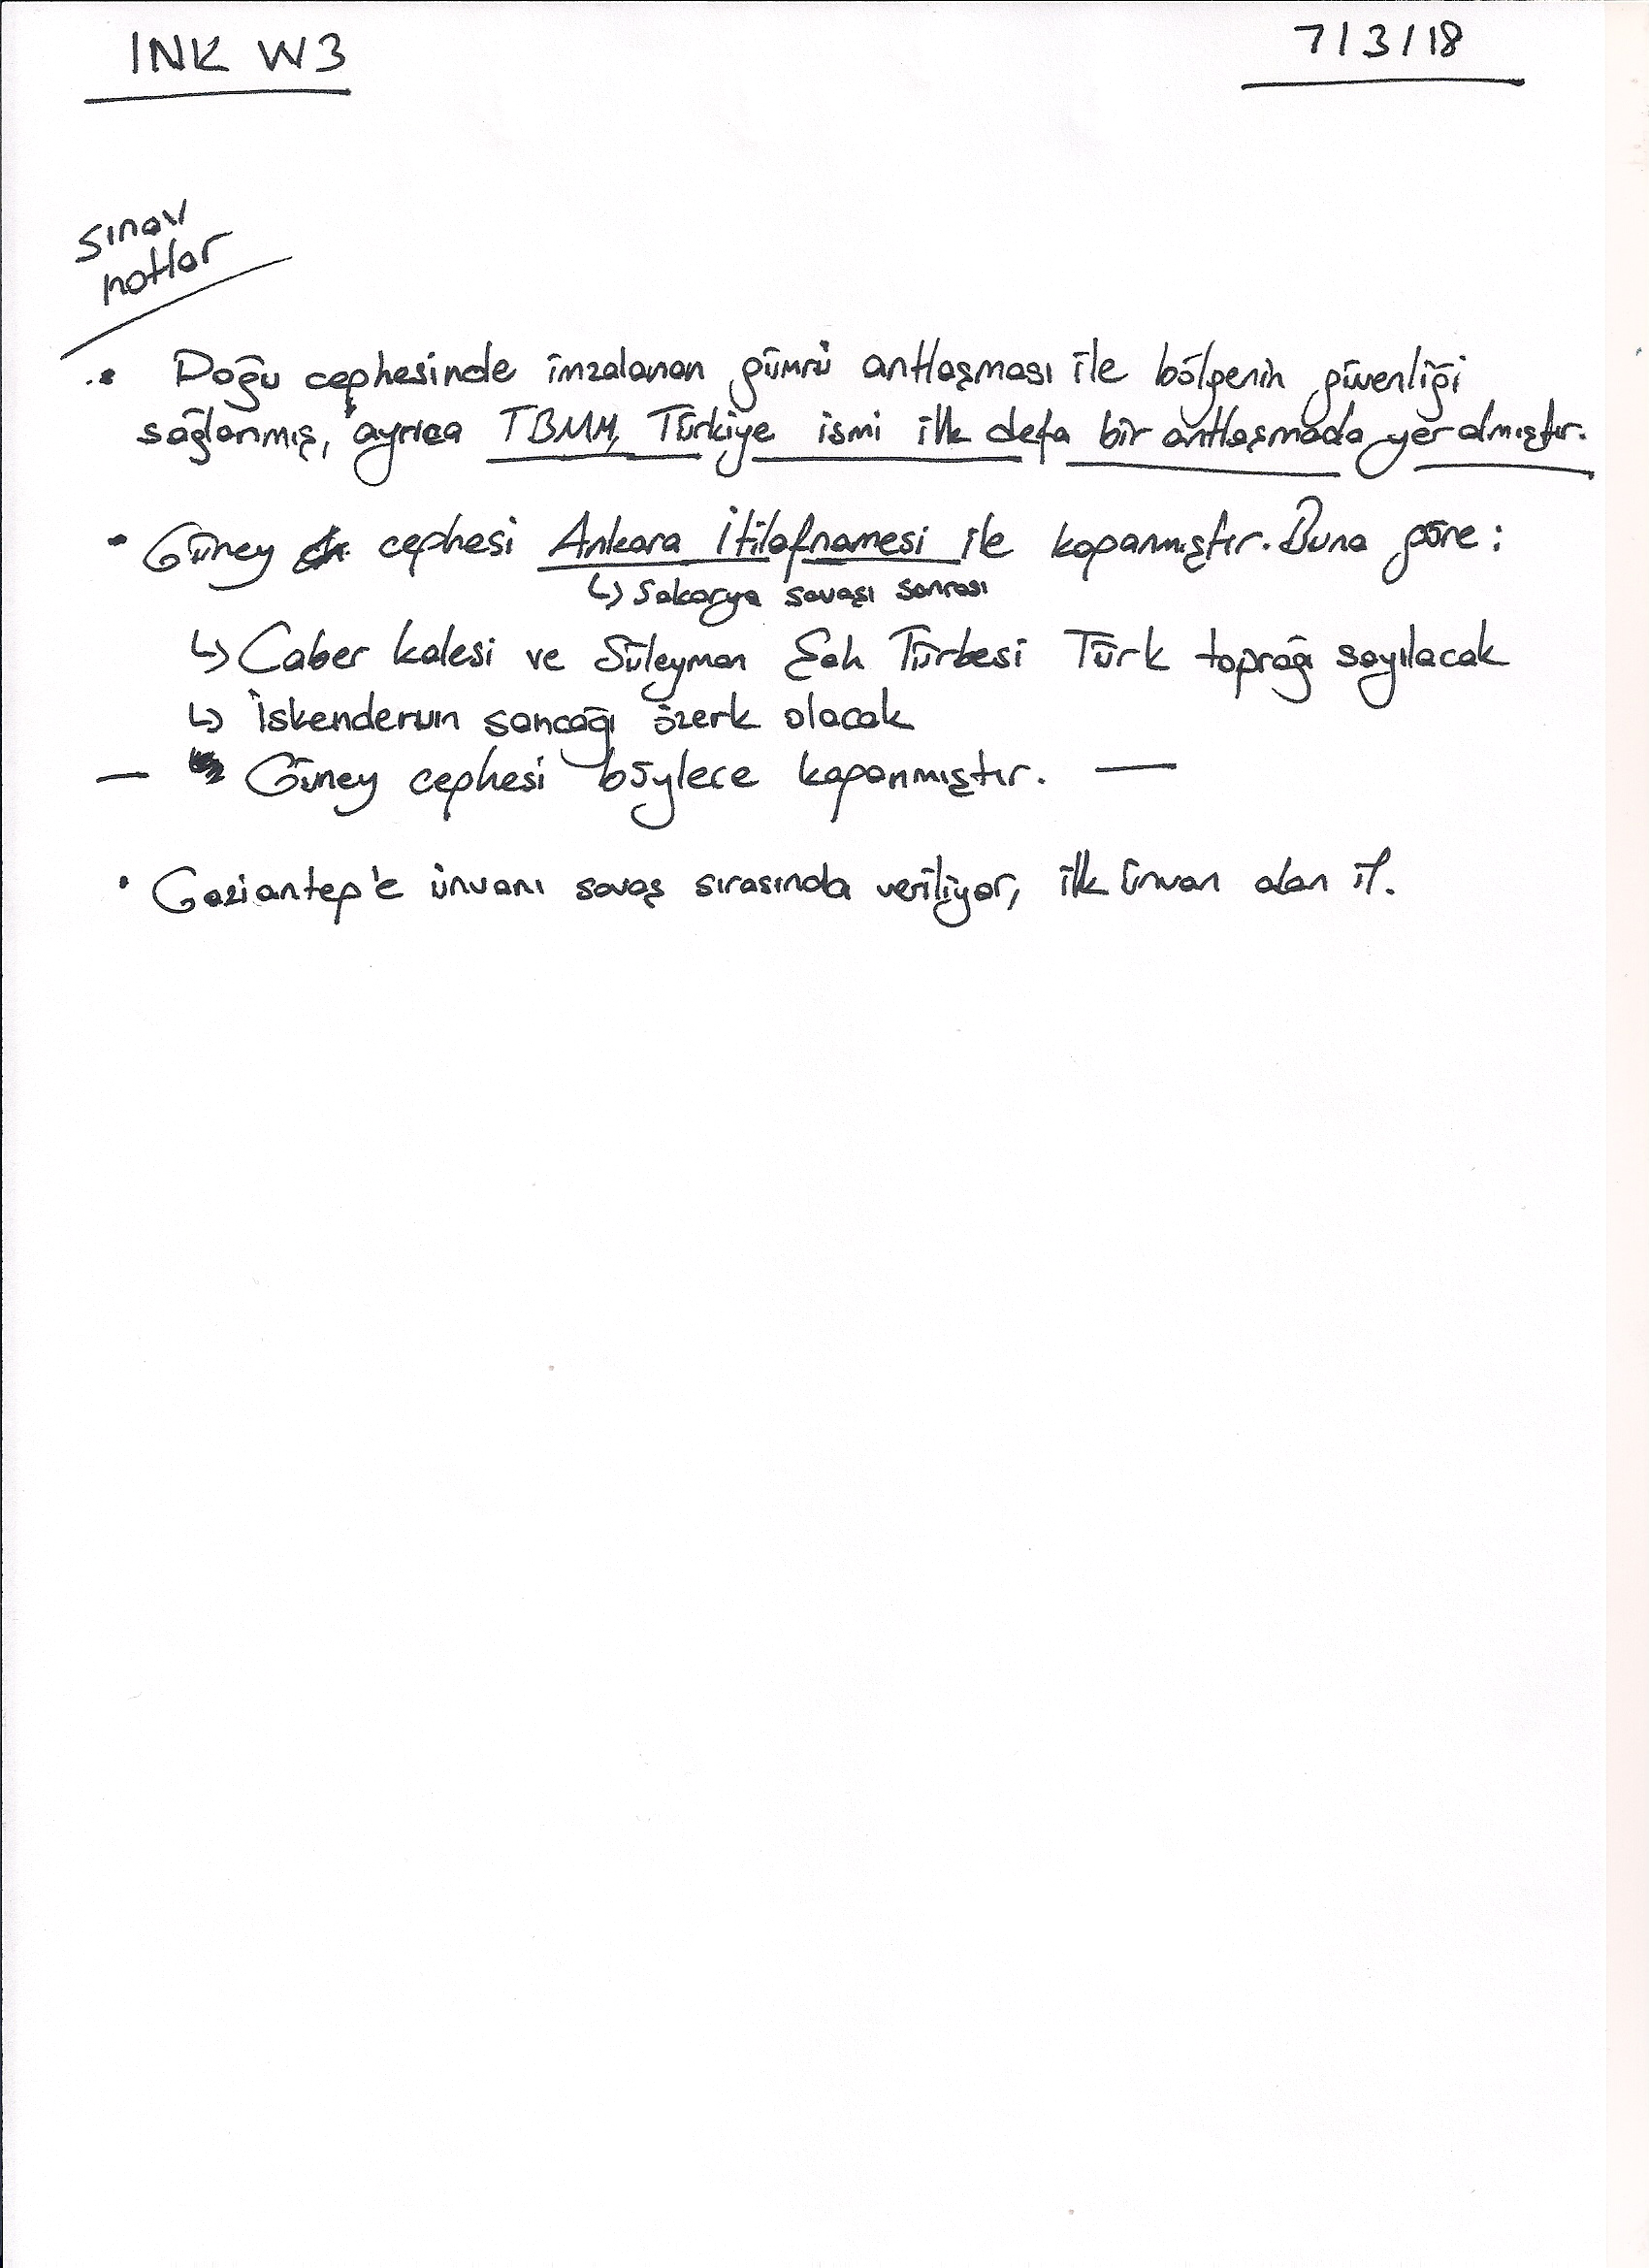 INK W3
7/3/18
Sınav
notlar
• Doğu cephesinde imzalanan gümrü antlaşması ile bölgenin güvenliği
sağlanmış, ayrıca TBMM, Türkiye ismi ilk defa bir antlaşmada yer almıştır.
• Güney cephesi Ankara İtilafnamesi ile kapanmıştır. Buna göre:
↳ Sakarya savaşı sonrası
↳ Caber kalesi ve Süleyman Şah Türbesi Türk toprağı sayılacak
↳ İskenderun sancağı özerk olacak
— Güney cephesi böylece kapanmıştır. —
• Gaziantep'e ünvanı savaş sırasında veriliyor, ilk ünvan alan il.